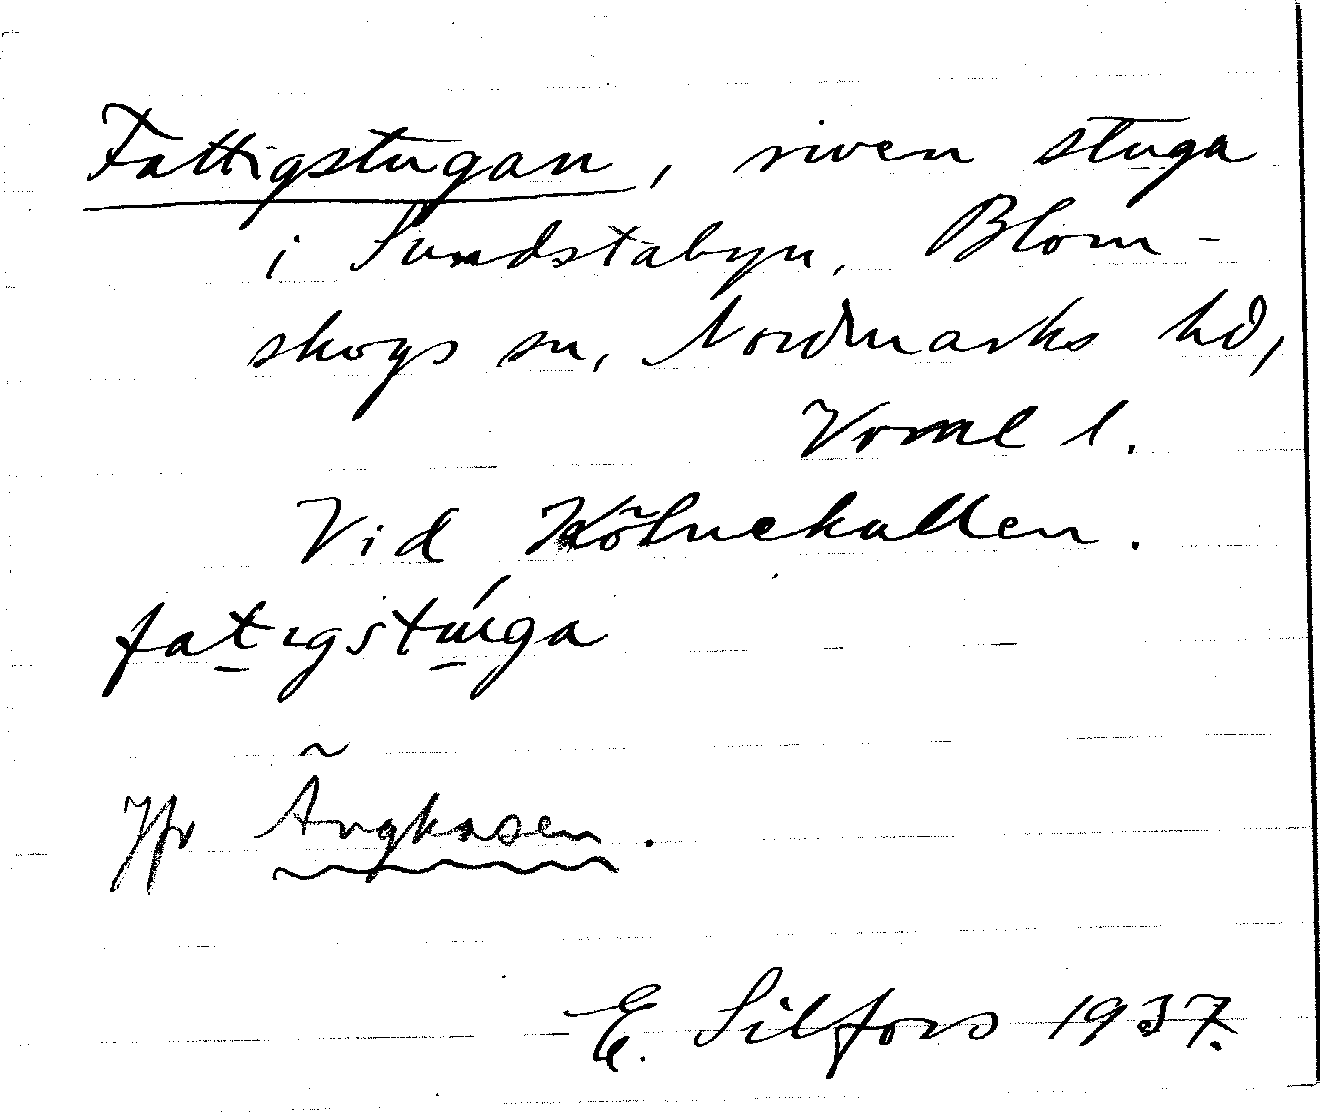 Fattigstugan, riven stuga
i Sundstabyn, Blom-
skogs sn, Nordmarks hd,
Vrml l.
Vid Kölnekullen.
fatıgstúga
Jfr Ängkasen.
E. Silfors 1937.